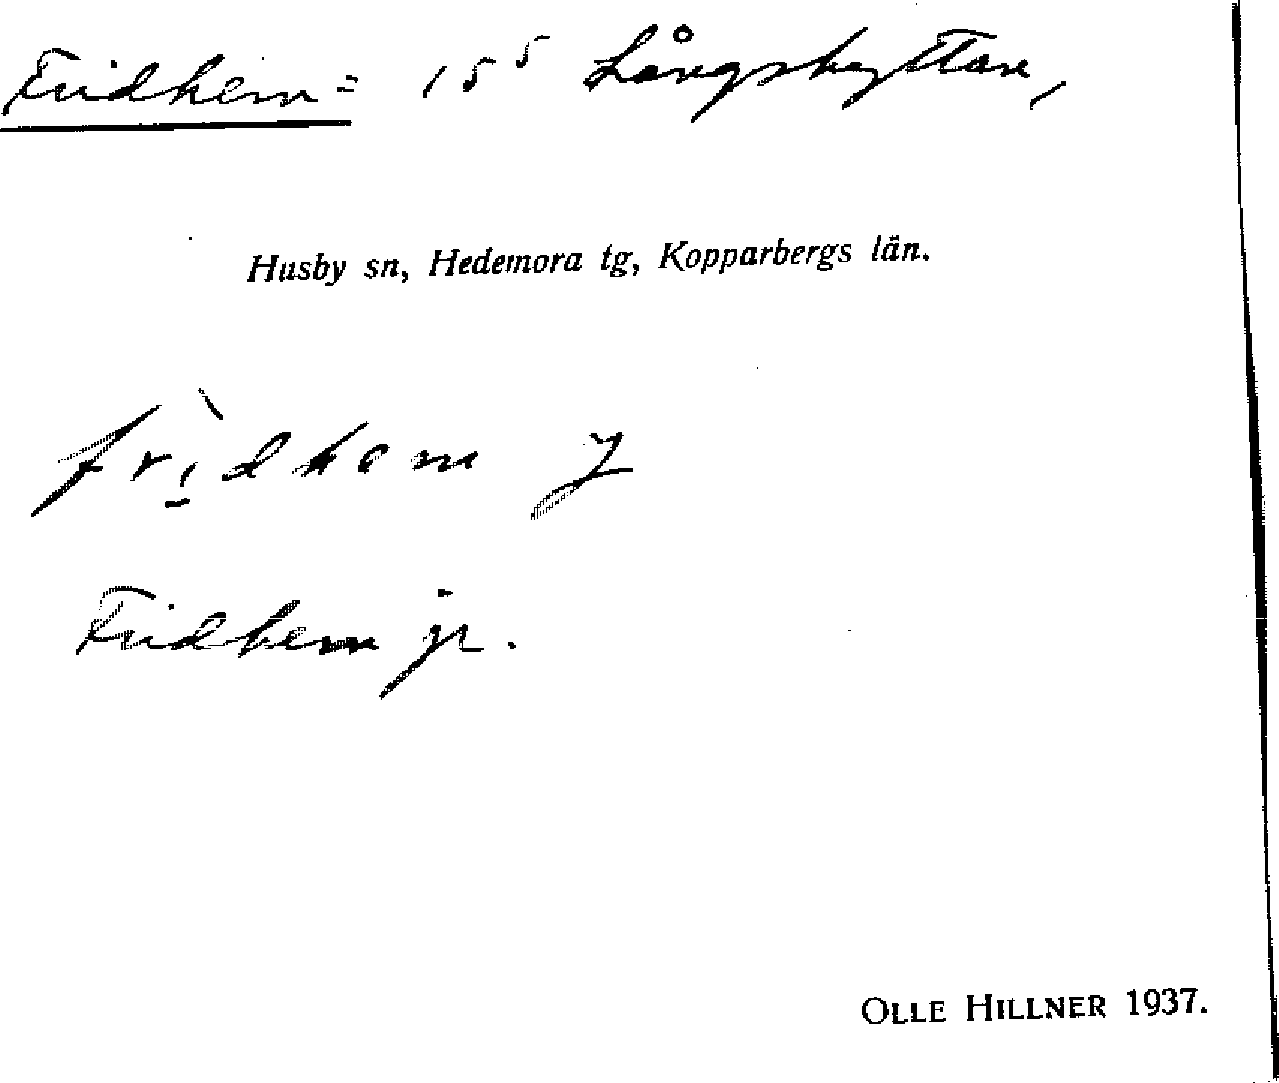 Fridhem = 15⁵ Långshyttan,
Husby sn, Hedemora tg, Kopparbergs län.
Fridhem jr.
OLLE HILLNER 1937.